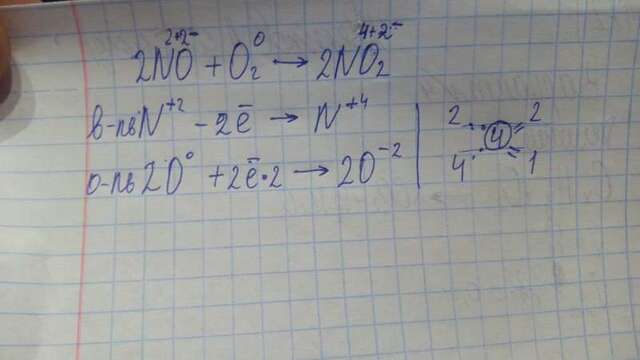 2+2-  0  4+2-
2NO + O₂ → 2NO₂
в-ль N⁺² - 2ē → N⁺⁴ | 2 4 2
о-ль 2O⁰ + 2ē·2 → 2O⁻² | 4 1